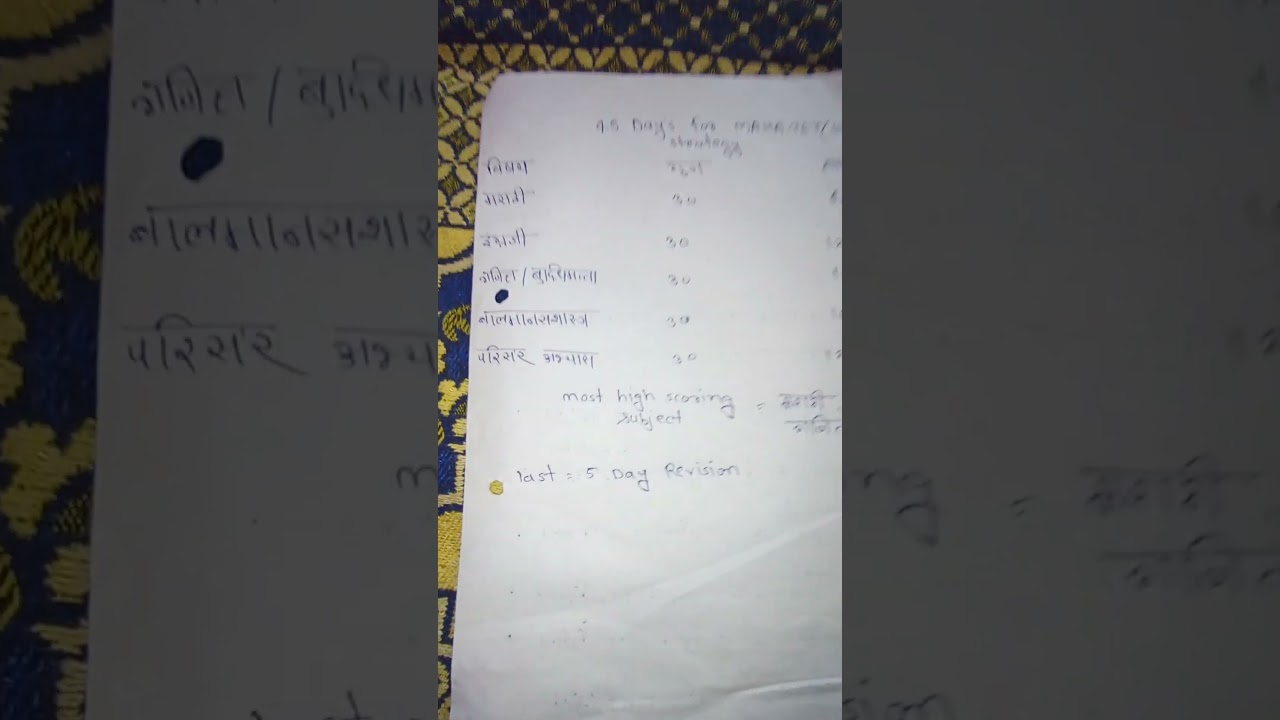 45 Days for MAHATET
strategy
विषय गुण
मराठी 30
इंग्रजी 30
गणित / बुध्दिमत्ता 30
बालमानसशास्त्र 30
परिसर अभ्यास 30
most high scoring
subject = मराठी
गणित
last = 5 Day Revision